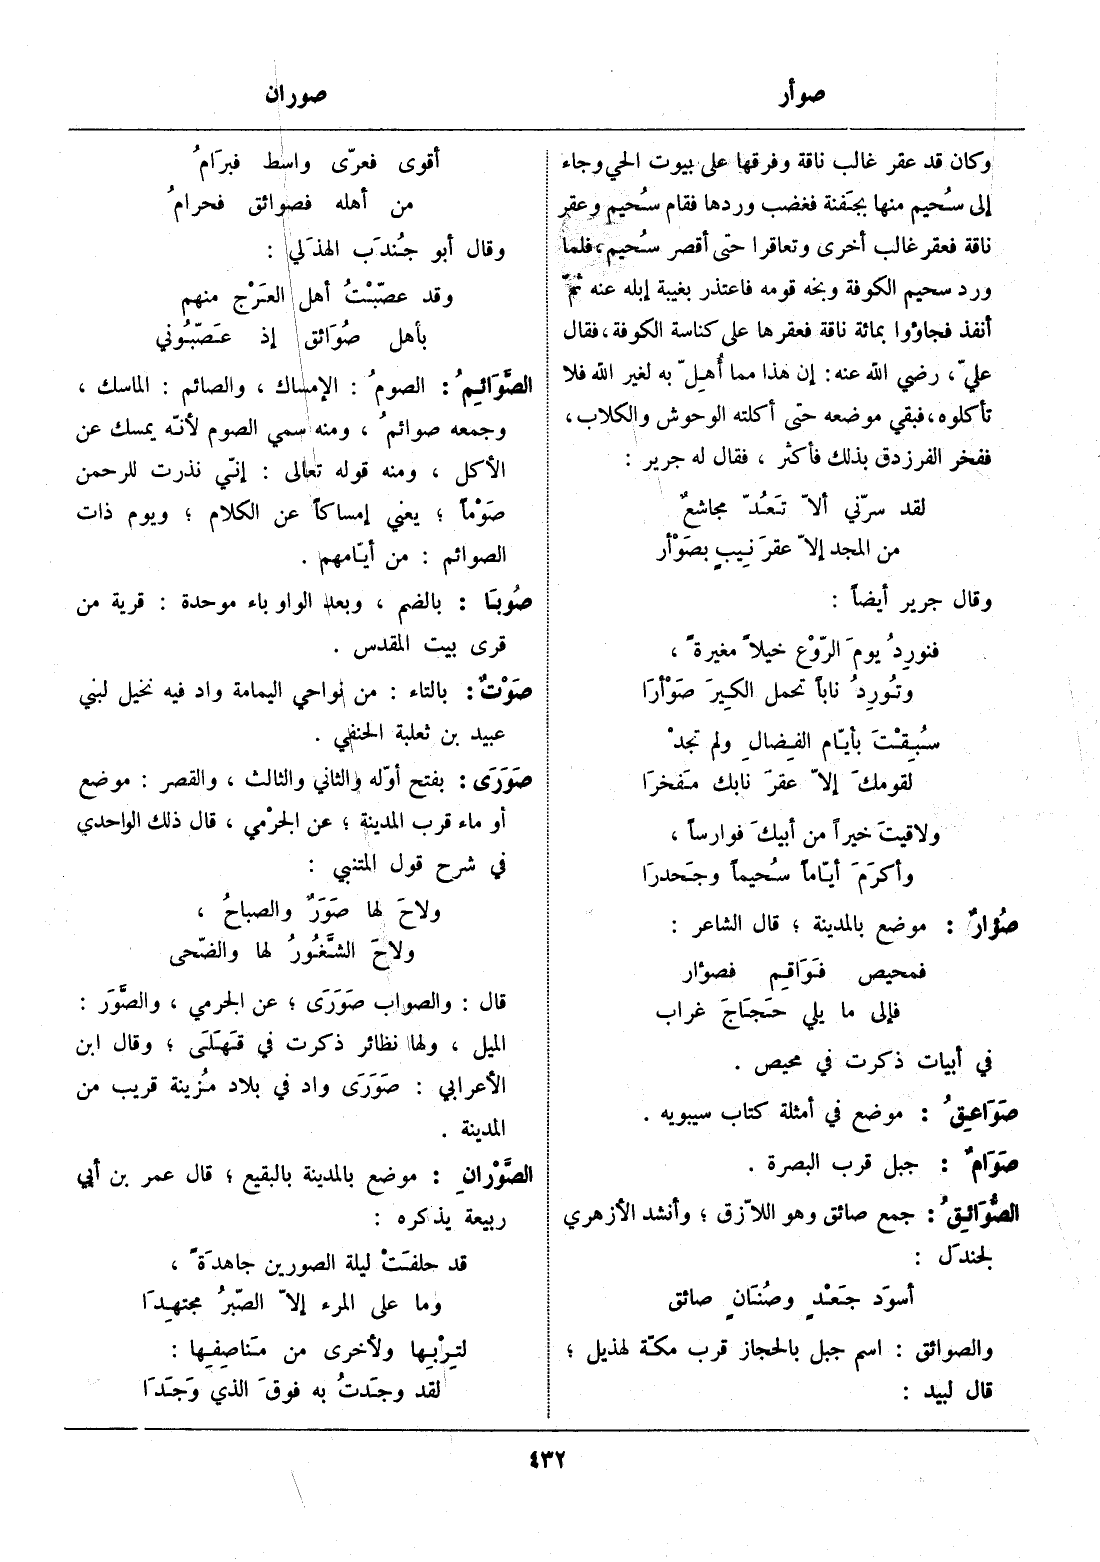 صوأر
صوران
وكان قد عقر غالب ناقة وفرقها على بيوت الحي وجاء
إلى سُحيم منها بجَفنة فغضب وردها فقام سُحيم وعقر
ناقة فعقر غالب أخرى وتعاقرا حتى أقصر سُحيم، فلما
ورد سحيم الكوفة وبخه قومه فاعتذر بغيبة إبله عنه ثمّ
أنفذ فجاؤوا بمائة ناقة فعقرها على كناسة الكوفة، فقال
عليّ، رضي الله عنه: إن هذا مما أُهِلّ به لغير الله فلا
تأكلوه، فبقي موضعه حتى أكلته الوحوش والكلاب،
ففخر الفرزدق بذلك فأكثر ، فقال له جرير :
لقد سرّني ألاّ تَعُدّ مجاشعٌ
من المجد إلاّ عقرَ نِيبٍ بصَوْأر
وقال جرير أيضاً :
فنورِدُ يومَ الرّوْع خيلاً مغيرةً ،
وتُورِدُ ناباً تحمل الكِيرَ صَوْأرَا
سُبِقْتَ بأيّام الفِضالِ ولم تجدْ
لقومكَ إلاّ عقرَ نابك مَفخرَا
ولاقيتَ خيراً من أبيكَ فوارساً ،
وأكرَمَ أيّاماً سُحيماً وجَحدرَا
صُؤارٌ : موضع بالمدينة ؛ قال الشاعر :
فمحيص فَوَاقِم فصوْار
فإلى ما يلي حَجَاجَ غراب
في أبيات ذكرت في محيص .
صَوَاعِقُ : موضع في أمثلة كتاب سيبويه .
صَوَامٌ : جبل قرب البصرة .
الصَّوَائِقُ : جمع صائق وهو اللاّزق ؛ وأنشد الأزهري
لجندَل :
أسوَد جَعْدٍ وصُنَانٍ صائق
والصوائق : اسم جبل بالحجاز قرب مكّة لهذيل ؛
قال لبيد :
أقوى فعرّى واسط فبرَامُ
من أهله فصوائق فحرامُ
وقال أبو جُندَب الهذلي :
وقد عصّبْتُ أهل العَرْج منهم
بأهل صُوَائق إذ عَصّبُوني
الصَّوَائِمُ : الصومُ : الإمساك ، والصائم : الماسك ،
وجمعه صوائمُ ، ومنه سمي الصوم لأنّه يمسك عن
الأكل ، ومنه قوله تعالى : إنّي نذرت للرحمن
صَوْماً ؛ يعني إمساكاً عن الكلام ؛ ويوم ذات
الصوائم : من أيّامهم .
صُوبَا : بالضم ، وبعد الواو باء موحدة : قرية من
قرى بيت المقدس .
صَوْتٌ : بالتاء : من نواحي اليمامة واد فيه نخيل لبني
عبيد بن ثعلبة الحنفي .
صَوَرَى : بفتح أوّله والثاني والثالث ، والقصر : موضع
أو ماء قرب المدينة ؛ عن الجرْمي ، قال ذلك الواحدي
في شرح قول المتنبي :
ولاحَ لها صَوَرٌ والصباحُ ،
ولاحَ الشَّغُورُ لها والضّحى
قال : والصواب صَوَرَى ؛ عن الجرمي ، والصَّوَر :
الميل ، ولها نظائر ذكرت في قَهَلَى ؛ وقال ابن
الأعرابي : صَوَرَى واد في بلاد مُزينة قريب من
المدينة .
الصَّوْرانِ : موضع بالمدينة بالبقيع ؛ قال عمر بن أبي
ربيعة يذكره :
قد حلفَتْ ليلة الصورين جاهدَةً ،
وما على المرء إلاّ الصّبرُ مجتهِدَا
لتِرْبِها ولأخرى من مَناصِفِها :
لقد وجَدتُ به فوقَ الذي وَجَدَا
٤٣٢